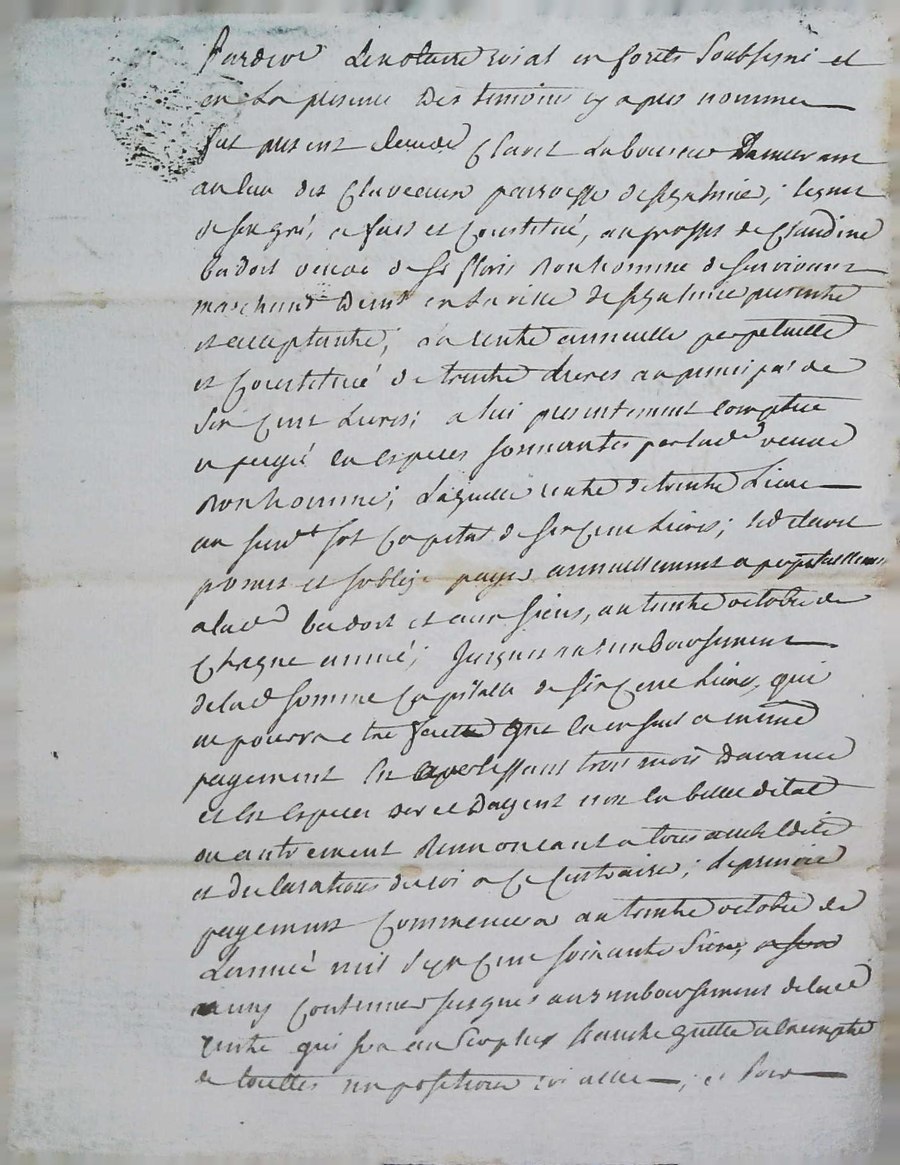 Pardevant Le notaire roial en forets Soubsigné et
en la presence des temoins cy apres nommes
fut present Claude Claret Laboureur Demeurant
au lieu des Claveaux parroisse de ; lequel
de son gré, a fait et Constitué, au proffit de Claudine
badort veuve de Sr floris Bonhomme de Survivant
marchand Demt en la ville de presente
et acceptante; La rente annuelle perpetuelle
et Constitué de trente Livres au principal de
Six Cent Livres; a lui presentement comptée
et payé en especes sonnantes par lad veuve
Bonhomme; Laquelle rente de trente Livre
au sort Capital de Six Cent Livres; led Claret
promet et soblige payer annuellement a perpetuellement
a lad badort et aux siens, au trente octobre de
Chaque année; jusques au rembourssement
de lad somme Capitale de six Cent Livres, qui
ne pourra etre faitte que en un seul et meme
payement en avertissant trois mois Davance
et en especes dor et Dargent non en billet detat
ou autrement Renoncant a tous arrets edits
et declarations du roi a Ce Contraire; le premier
payement Commencera au trente octobre de
Lannée mil sept Cent soixante
continuer jusques au rembourssement de lad
rente qui sera au Surplus franche quitte et exempte
de touttes impositions roialles; et Pour